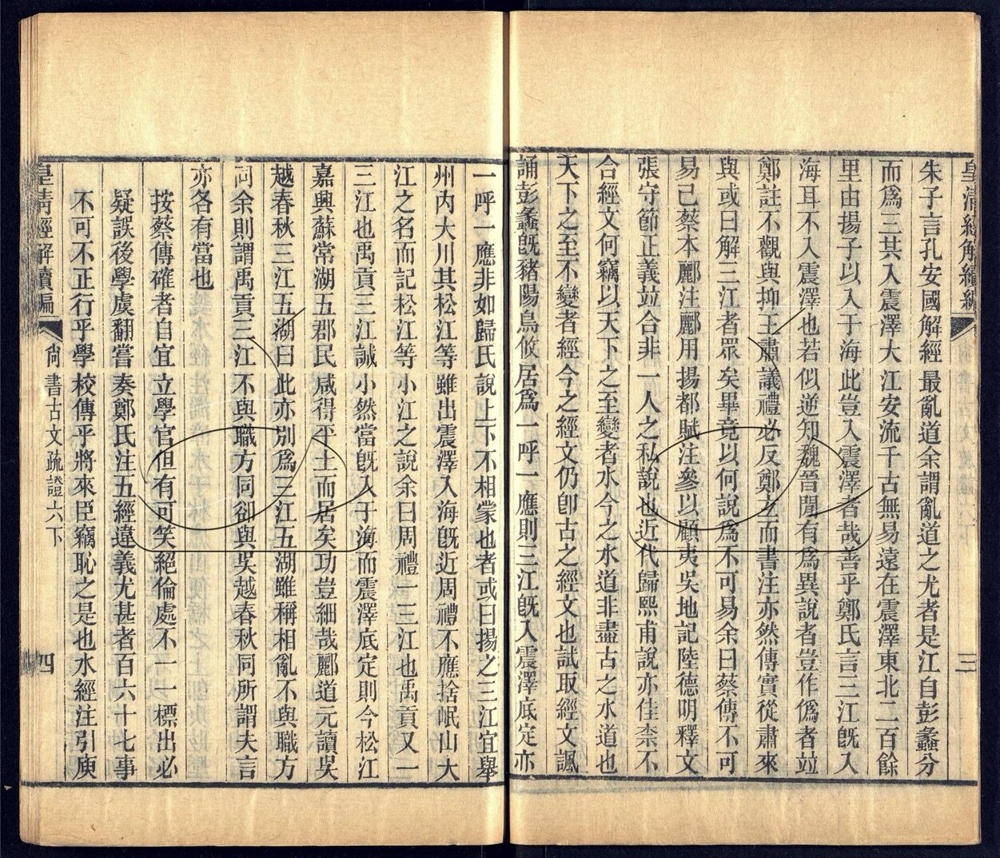 皇清經解續編
三
朱子言孔安國解經最亂道余謂亂道之尤者是江自彭蠡分
而爲三共入震澤大江安流千古無易遠在震澤東北二百餘
里由揚子以入于海此豈入震澤者哉善乎鄭氏言三江旣入
海耳不入震澤也若似逆知魏晉閒有爲異說者豈作僞者竝
鄭註不觀與抑王肅議禮必反鄭玄而書注亦然傳實從肅來
與或曰解三江者眾矣畢竟以何說爲不可易余曰蔡傳不可
易己蔡本酈注酈用揚都賦注參以顧夷吳地記陸德明釋文
張守節正義竝合非一人之私說也近代歸熙甫說亦佳柰不
合經文何竊以天下之至變者水今之水道非盡古之水道也
天下之至不變者經今之經文仍卽古之經文也試取經文諷
誦彭蠡旣豬陽鳥攸居爲一呼一應則三江旣入震澤底定亦
一呼一應非如歸氏說上下不相蒙也者或曰揚之三江宜舉
州內大川其松江等雖出震澤入海旣近周禮不應捨岷山大
江之名而記松江等小江之說余曰周禮一三江也禹貢又一
三江也禹貢三江誠小然當旣入于海而震澤底定則今松江
嘉興蘇常湖五郡民咸得平土而居矣功豈細哉酈道元讀吳
越春秋三江五湖曰此亦別爲三江五湖雖稱相亂不與職方
同余則謂禹貢三江不與職方同卻與吳越春秋同所謂夫言
亦各有當也
按蔡傳確者自宜立學官但有可笑絕倫處不一一標出必
疑誤後學虞翻嘗奏鄭氏注五經違義尤甚者百六十七事
不可不正行乎學校傳乎將來臣竊恥之是也水經注引庾
皇清經解續編
尙書古文疏證六下
四